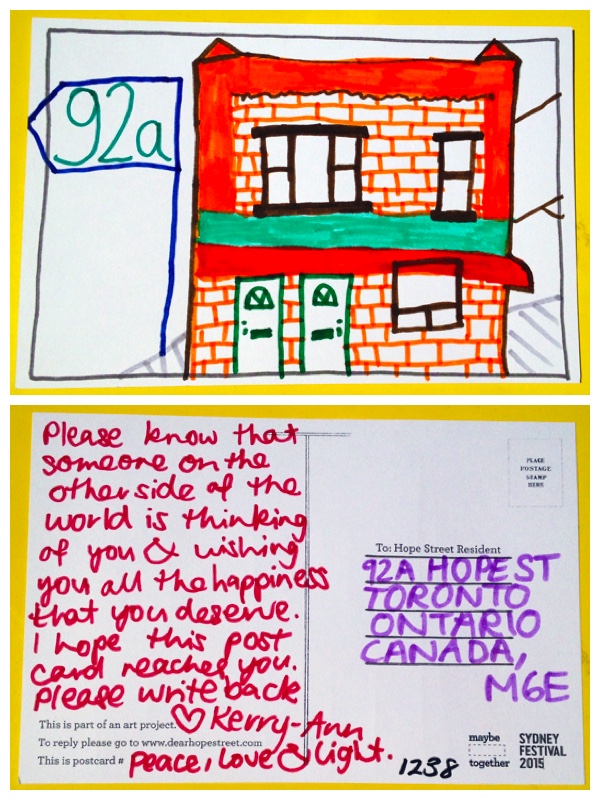 92a
Please know that
someone on the
other side of the
world is thinking
of you & wishing
you all the happiness
that you deserve.
I hope this post
card reached you.
Please write back
♡ Kerry-Ann
Peace, Love & Light.
This is part of an art project.
To reply please go to www.dearhopestreet.com
This is postcard #
1238
PLACE
POSTAGE
STAMP
HERE
To: Hope Street Resident
92A HOPE ST
TORONTO
ONTARIO
CANADA,
M6E
maybe
together
SYDNEY
FESTIVAL
2015